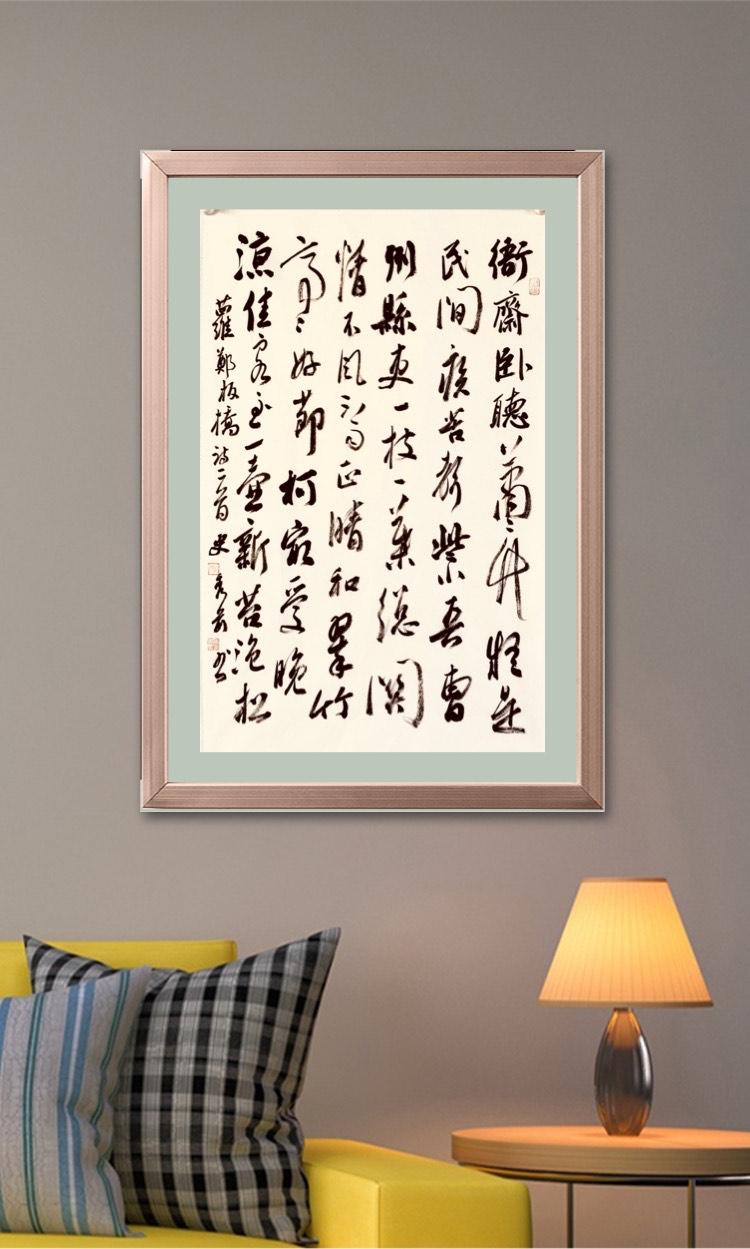 衙齋卧聽蕭〻竹疑是
民間疾苦聲些小吾曹
州縣吏一枝一葉總關
情不風不雨正晴和翠竹
亭〻好節柯最愛晚
涼佳客至一壺新茗泡松
蘿鄭板橋詩二首史秀书